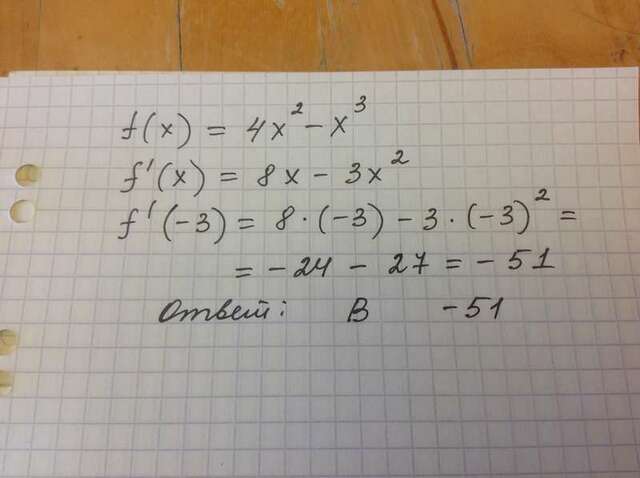 f(x) = 4x² - x³
f'(x) = 8x - 3x²
f'(-3) = 8·(-3) - 3·(-3)² =
= -24 - 27 = -51
Ответ: В -51